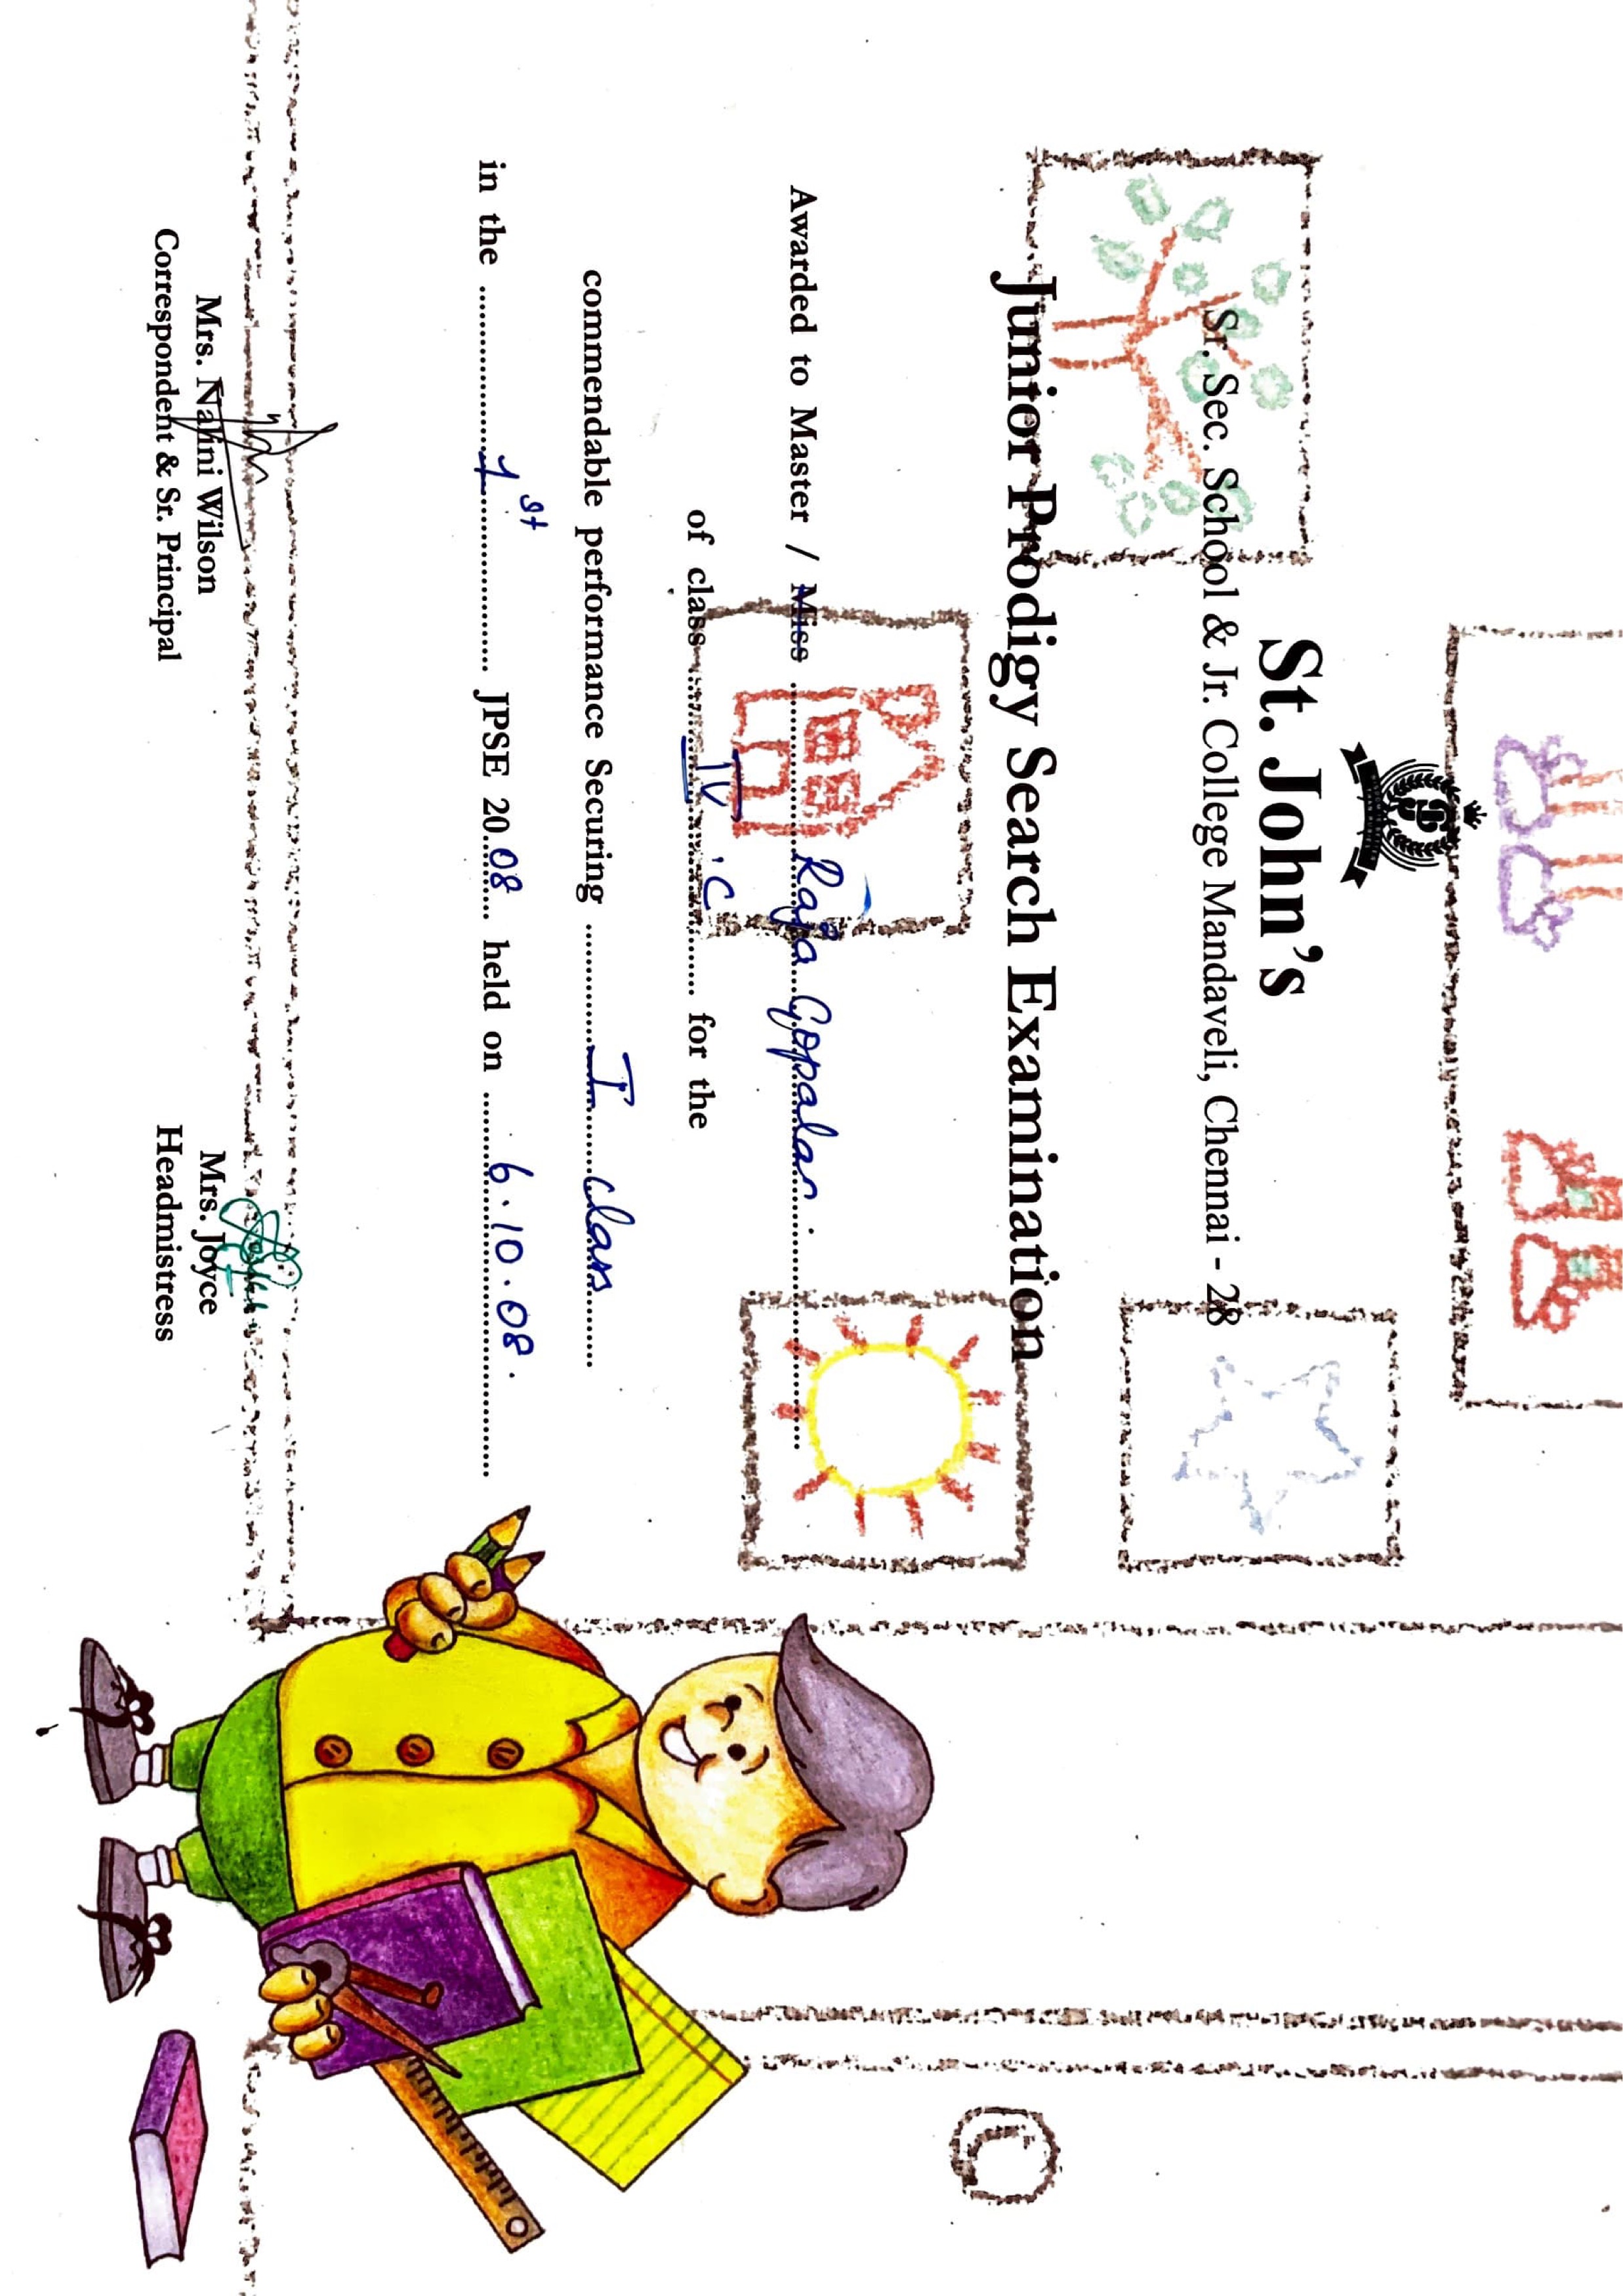 WISDOM IS BETTER
THAN RUBIES
St. John's
Sr. Sec. School & Jr. College Mandaveli, Chennai - 28
Junior Prodigy Search Examination
Awarded to Master / Miss Raja Gopalan.
of class IV 'C' for the
commendable performance Securing I class
in the 1st JPSE 2008 held on 6.10.08.
Joyce
Mrs. Nalini Wilson Mrs. Joyce
Correspondent & Sr. Principal Headmistress